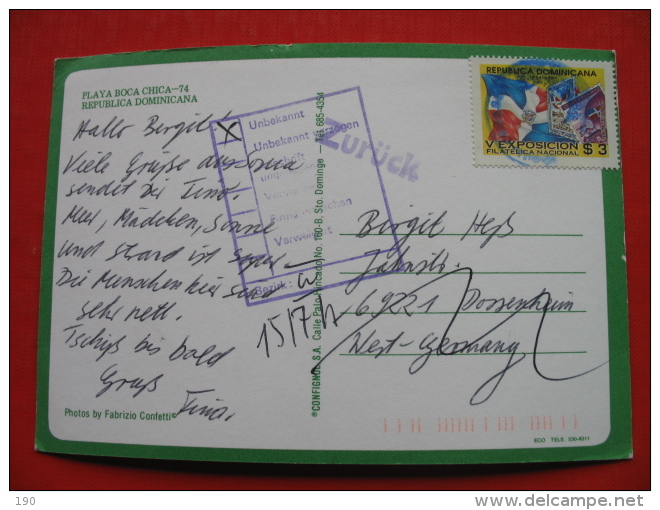 PLAYA BOCA CHICA—74
REPUBLICA DOMINICANA
Hallo Birgit
Viele Grüße aus
sendet Dir Tino.
Meer, Mädchen, Sonne
und Strand ist super
Die Menschen hier sind
sehr nett.
Tschüß bis bald
Gruß
Tino.
Photos by Fabrizio Confetti©
X Unbekannt
Unbekannt verzogen
Firma erloschen
Verweigert
Bezirk:
Zurück
15/7
©CONFIGNOL S.A. Calle Palo Hincado No. 160-B, Sto. Domingo — Tel. 685-4354
REPUBLICA DOMINICANA
V EXPOSICION
FILATELICA NACIONAL
$ 3
Birgit Heß
Jahnstr.
69221 Dossenheim
West-Germany
ECO TELS. 530-8311
190
www.delcampe.net